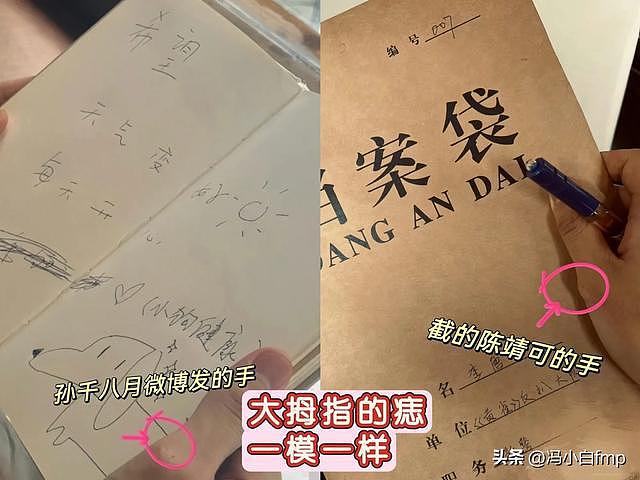 希润
王
天气变
每天开
好
小狗健康
孙千八月微博发的手
编号 007
档案袋
DANG AN DAI
截的陈靖可的手
名 李
单位
职务
大拇指的痣
一模一样
头条 @冯小白fmp